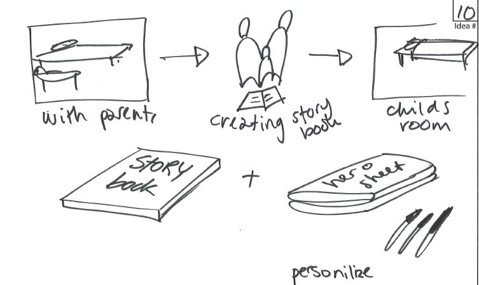 10
Idea #
with parents
creating story
book
childs
room
STORY
book
+
hero
sheet
personilize